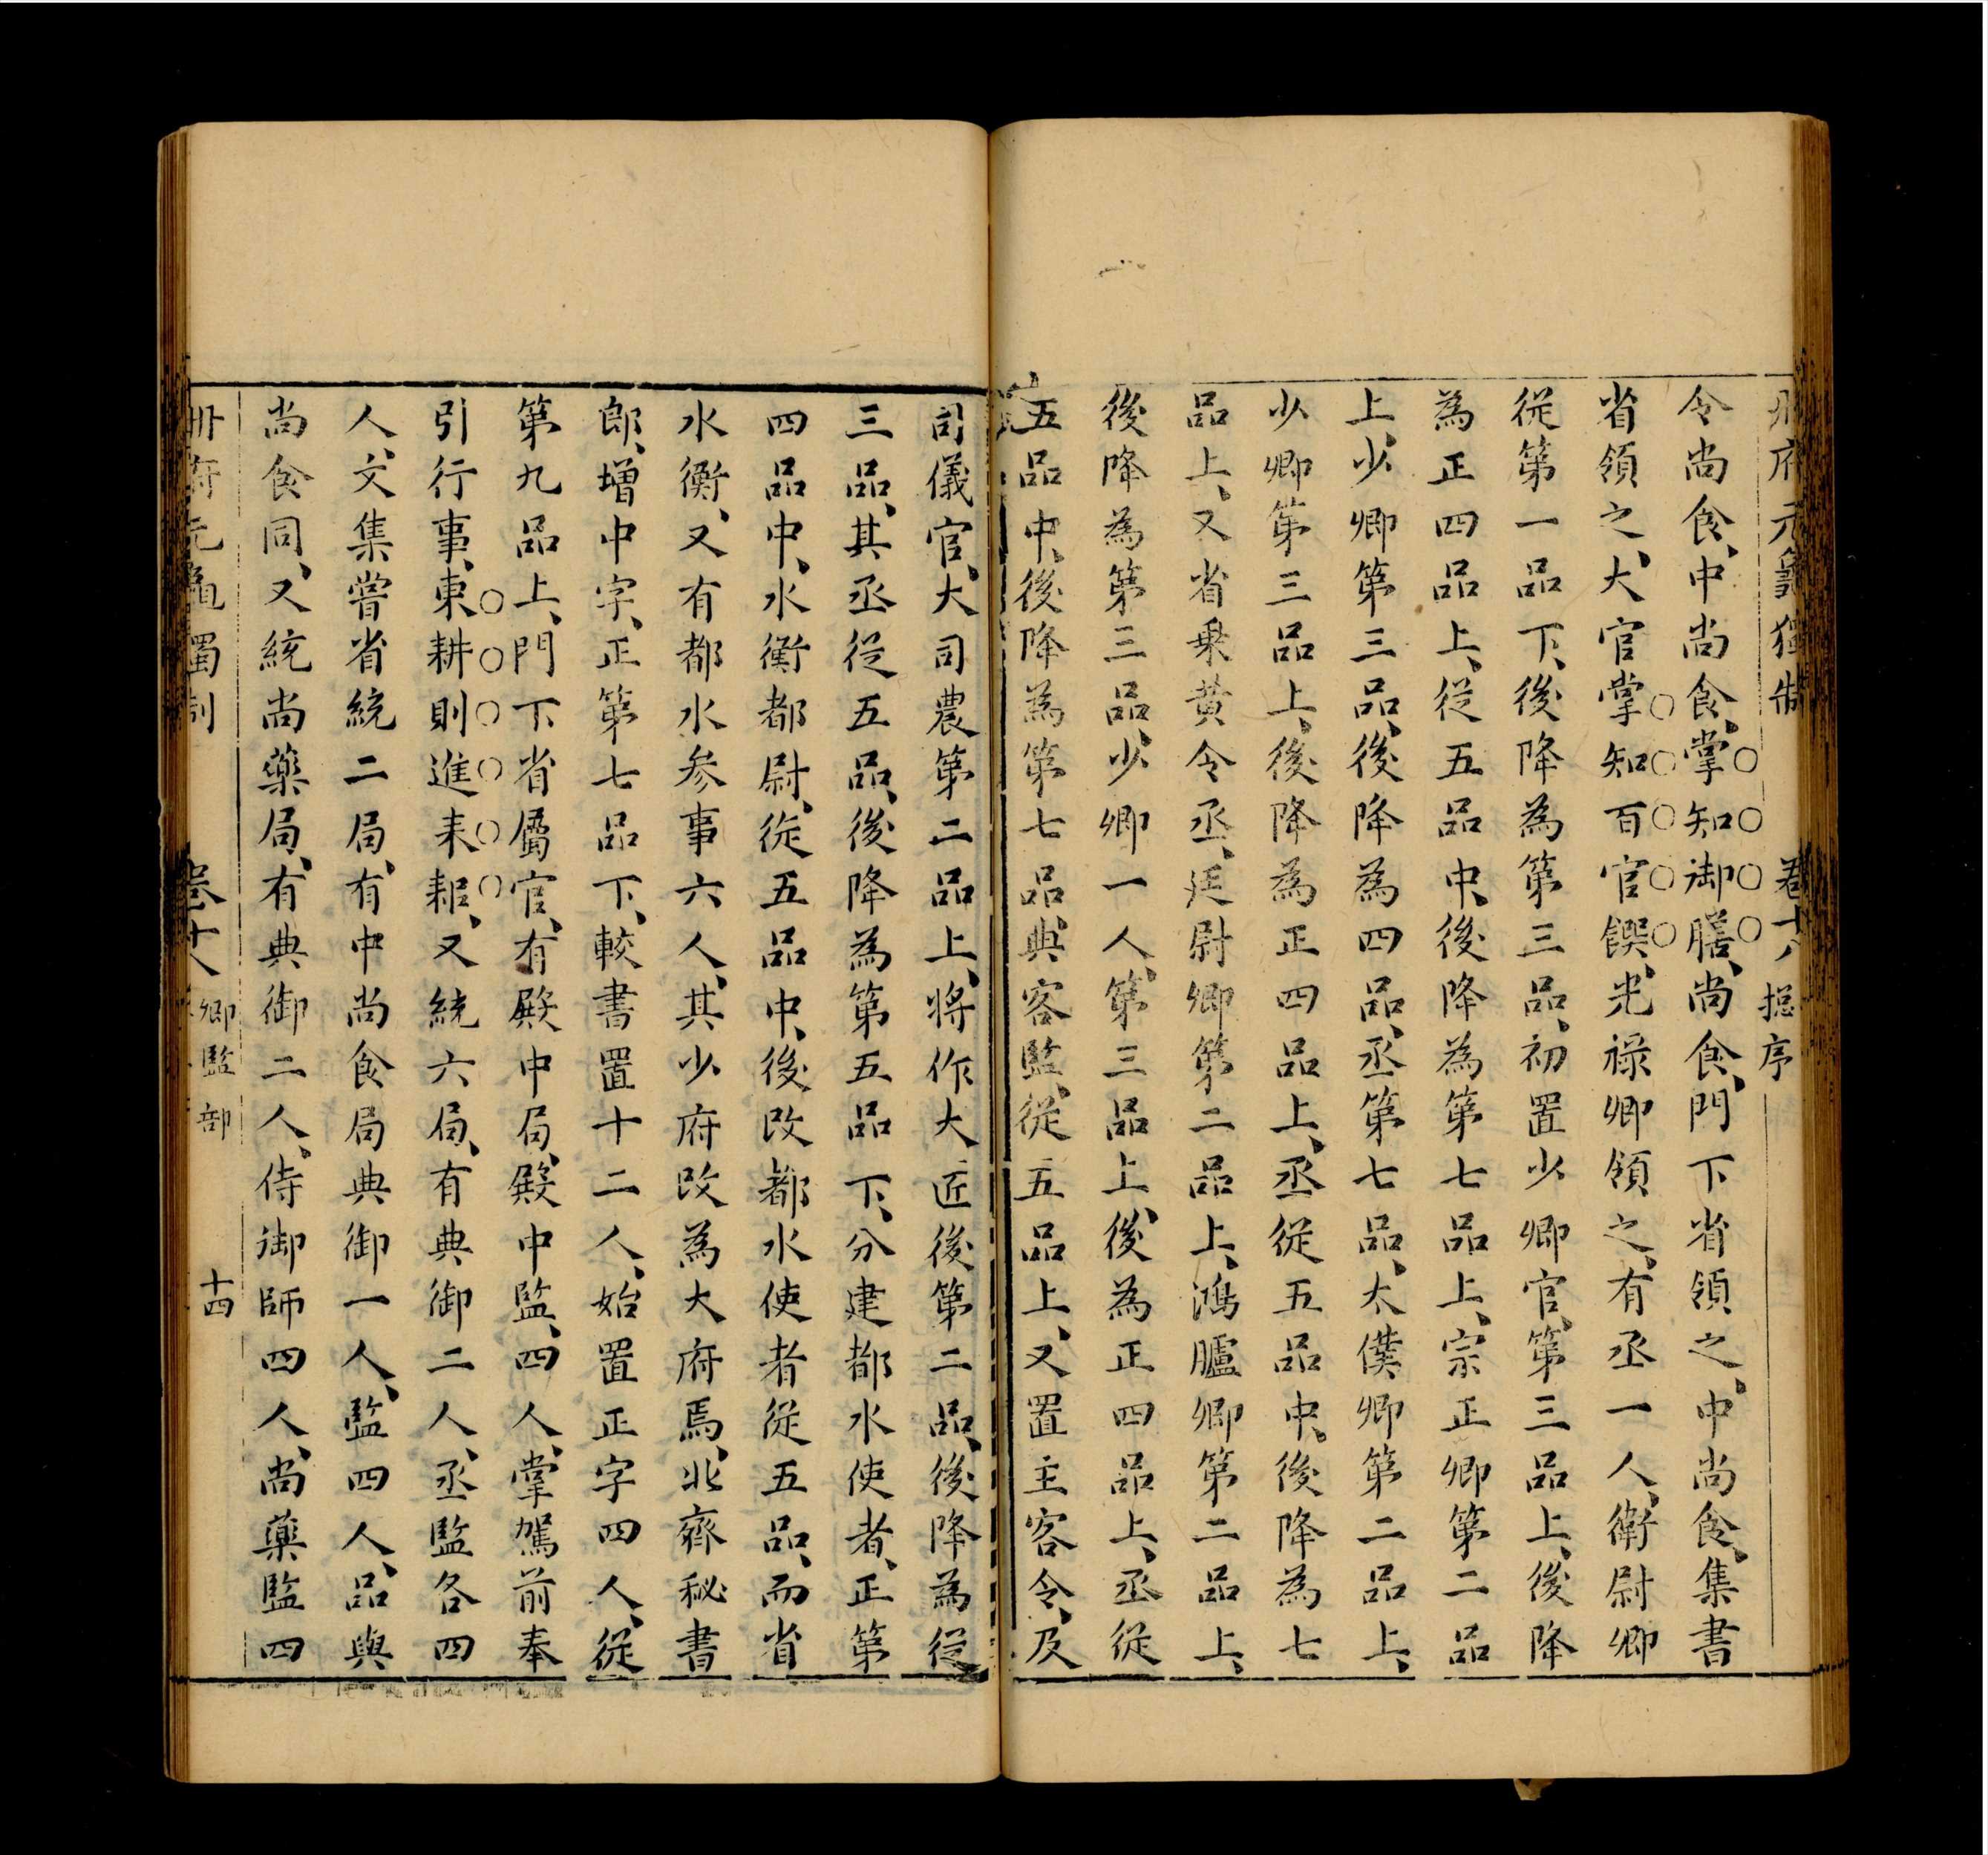 冊府元龜獨制 卷十八 摠序
令尚食、中尚食、掌知御膳、尚食、門下省領之、中尚食、集書
省領之、大官掌知百官饌、光祿卿領之、有丞一人、衛尉卿
從第一品下、後降為第三品、初置少卿官、第三品上、後降
為正四品上、從五品中、後降為第七品上、宗正卿第二品
上、少卿第三品、後降為四品、丞第七品、太僕卿第二品上、
少卿第三品上、後降為正四品上、丞從五品中、後降為七
品上、又省乗黄令丞、廷尉卿第二品上、鴻臚卿第二品上、
後降為第三品、少卿一人、第三品上、後為正四品上、丞從
五品中、後降為第七品、典客監、從五品上、又置主客令、及
司儀官、大司農第二品上、將作大匠後第二品、後降為從
三品、其丞從五品、後降為第五品下、分建都水使者、正第
四品中、水衡都尉、從五品中、後改都水使者從五品、而省
水衡、又有都水参事六人、其少府改為大府焉、北齊秘書
郎、增中字、正第七品下、較書置十二人、始置正字四人、從
第九品上、門下省屬官、有殿中局、殿中監、四人、掌駕前奉
引行事、東耕則進耒耜、又統六局、有典御二人、丞監各四
人、文集嘗省統二局、有中尚食局典御一人、監四人、品與
尚食同、又統尚藥局、有典御二人、侍御師四人、尚藥監四
冊府元龜獨制 卷十八 卿監部 十四